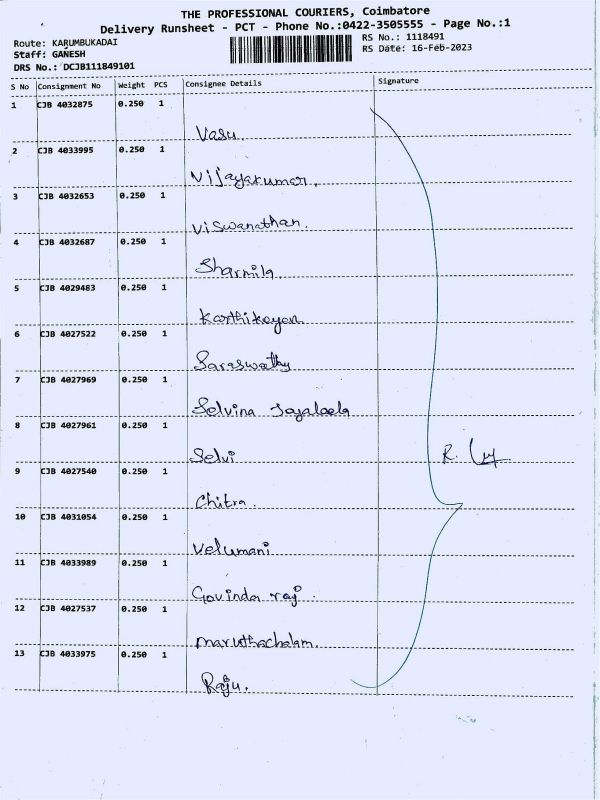 THE PROFESSIONAL COURIERS, Coimbatore
Delivery Runsheet - PCT - Phone No.:0422-3505555 - Page No.:1
Route: KARUMBUKADAI
Staff: GANESH
DRS No.: DCJB111849101
RS No.: 1118491
RS Date: 16-Feb-2023
S No Consignment No Weight PCS Consignee Details Signature
1 CJB 4032875 0.250 1
Vasu
2 CJB 4033995 0.250 1
Vijayakumar.
3 CJB 4032653 0.250 1
Viswanathan.
4 CJB 4032687 0.250 1
Sharmila.
5 CJB 4029483 0.250 1
Karthikeyan
6 CJB 4027522 0.250 1
Saraswathy
7 CJB 4027969 0.250 1
Selvina Jayaleela
8 CJB 4027961 0.250 1
Selvi
R.
9 CJB 4027540 0.250 1
Chitra.
10 CJB 4031054 0.250 1
Velumani
11 CJB 4033989 0.250 1
Govinda raj.
12 CJB 4027537 0.250 1
maruthachalam.
13 CJB 4033975 0.250 1
Raju.